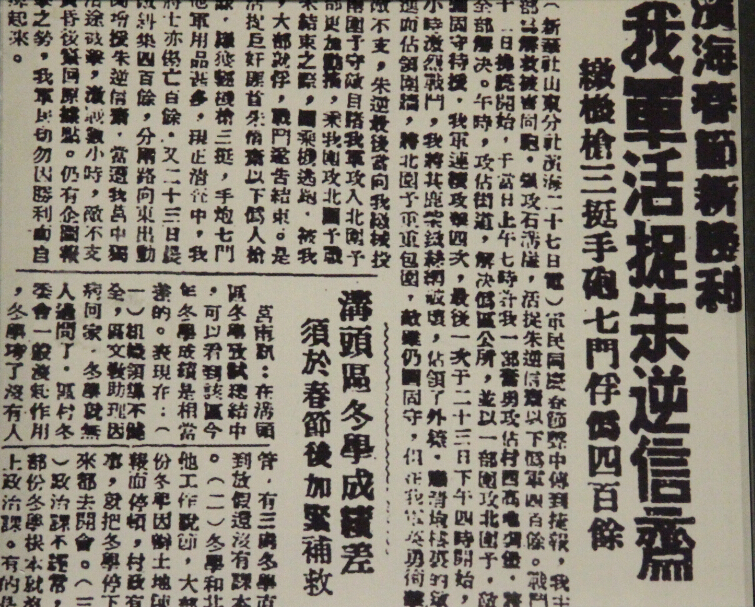 濱海春節新勝利
我軍活捉朱逆信齋
繳機槍三挺手砲七門俘僞四百餘
（新華社山東分社濱海二十七日電）軍民同慶春節聲中傳到捷報，我主
部爲解救被害同胞，強攻石溝崖，活捉朱逆信齋以下僞軍四百餘。戰鬥
全部解決。午時，攻佔街道，解決僞區公所，並以一部圍攻北圍子，敵
固守待援，我軍連續攻擊四次，最後一次于二十三日下午四時開始，
小時激烈戰鬥，我將其鹿柴鐵絲網破壞，佔領了外壕
進而佔領圍牆，將北圍子重重包圍，敵雖仍圖固守，但在我軍英勇
敵不支，朱逆最後當向我繳械投
南圍子守敵目睹我軍攻入北圍子
部更加動搖，乘我圍攻北圍子戰
未結束之際，圖乘機逃跑，被我
，大部就俘，戰鬥遂告結束。是
活捉巨奸頭首朱信齋以下僞人槍
機槍三挺，手炮七門
他軍用品甚多，現正清查中，我
將士亦傷亡百餘。又二十三日
敵糾集四百餘，分兩路向東出動
援朱逆信齋，當遭我
途截擊，激戰數小時，敵不支
黃昏後竄回原據點。仍有企圖報
之勢，我軍民切勿因勝利而自
起來。
溝頭區冬學成績差
須於春節後加緊補救
莒南訊：在溝頭
區冬學考試總結中
，可以看到該區今
年冬學成績是相當
差的。表現在：（
一）組織領導不健
全，區文救助理因
病回家，冬學就無
人過問了。區村冬
委會一般沒起作用
，冬學垮了沒有人
管，有三處冬學直
到放假還沒有課本
。（二）冬學和北
他工作脫節，大部
份冬學因辦土地陳
報而停頓，村政有
事，就把冬學停下
來都去開會。（三
）政治課不經常，
部份冬學根本就
上政治課。有的是